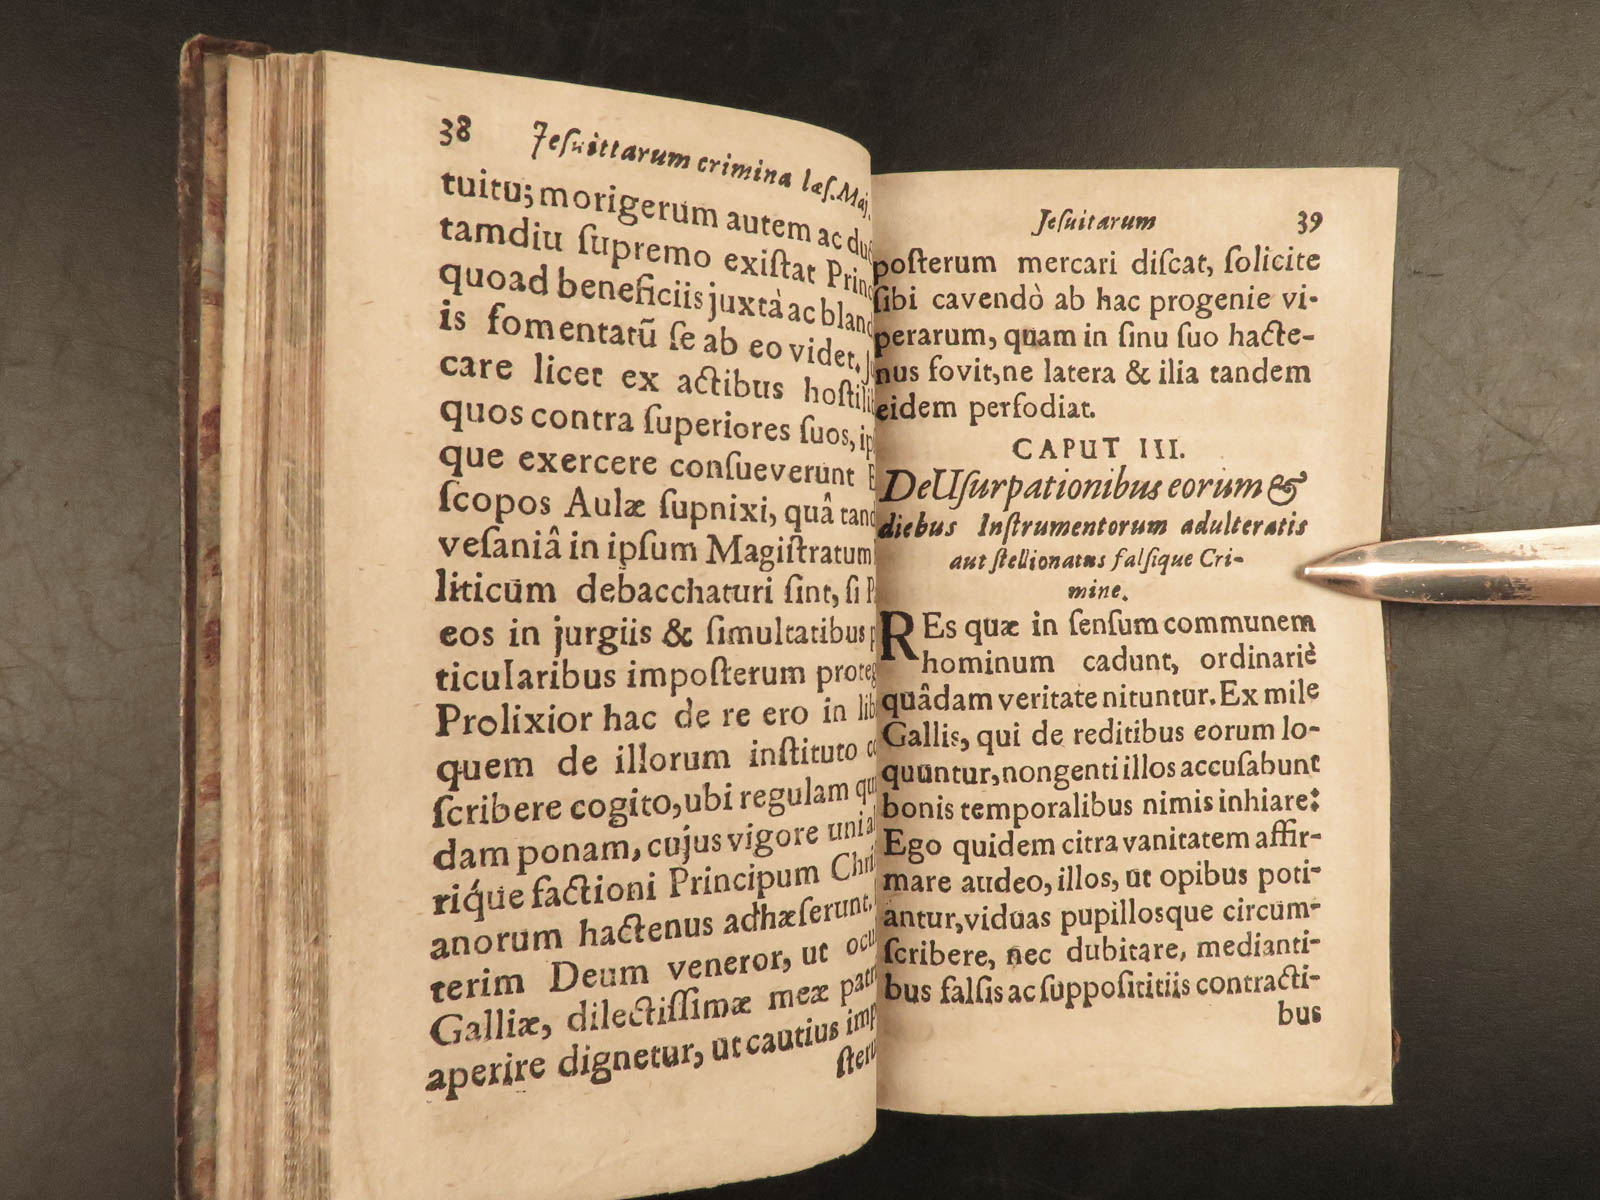 38 Jeſuittarum crimina læſ. Maj.
tuitu; morigerum autem ac
tamdiu ſupremo exiſtat
quoad beneficiis juxtà ac
is fomentatũ ſe ab eo videt.
care licet ex actibus
quos contra ſuperiores ſuos,
que exercere conſueverunt
ſcopos Aulæ ſupnixi, quâ
veſaniâ in ipſum Magiſtratum
liticum debacchaturi ſint, ſi
eos in jurgiis & ſimultatibus
ticularibus impoſterum
Prolixior hac de re ero in
quem de illorum inſtituto
ſcribere cogito, ubi regulam
dam ponam, cujus vigore
riq́ue factioni Principum
anorum hactenus adhæſerunt.
terim Deum veneror, ut
Galliæ, dilectiſſimæ meæ
aperire dignetur, ut cautius
Jeſuitarum 39
poſterum mercari diſcat, ſolicite
ſibi cavendò ab hac progenie vi-
perarum, quam in ſinu ſuo hacte-
nus fovit, ne latera & ilia tandem
eidem perfodiat.
CAPUT III.
De Uſurpationibus eorum &
diebus Inſtrumentorum adulteratis
aut ſtellionatus falſique Cri-
mine.
REs quæ in ſenſum communem
hominum cadunt, ordinariè
quâdam veritate nituntur. Ex mile
Gallis, qui de reditibus eorum lo-
quuntur, nongenti illos accuſabunt
bonis temporalibus nimis inhiare:
Ego quidem citra vanitatem affir-
mare audeo, illos, ut opibus poti-
antur, viduas pupillosque circum-
ſcribere, nec dubitare, medianti-
bus falſis ac ſuppoſititiis contracti-
bus